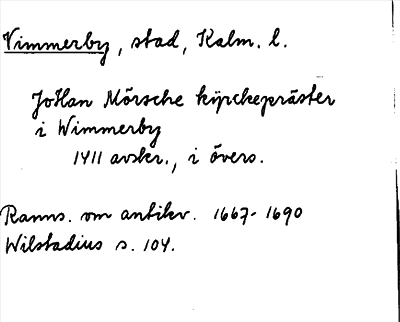 Vimmerby, stad, Kalm. l.
Johan Mörsche kÿrckepräster
i Wimmerby
1411 avskr., i övers.
Ranns. om antikv. 1667-1690
Wilstadius s. 104.